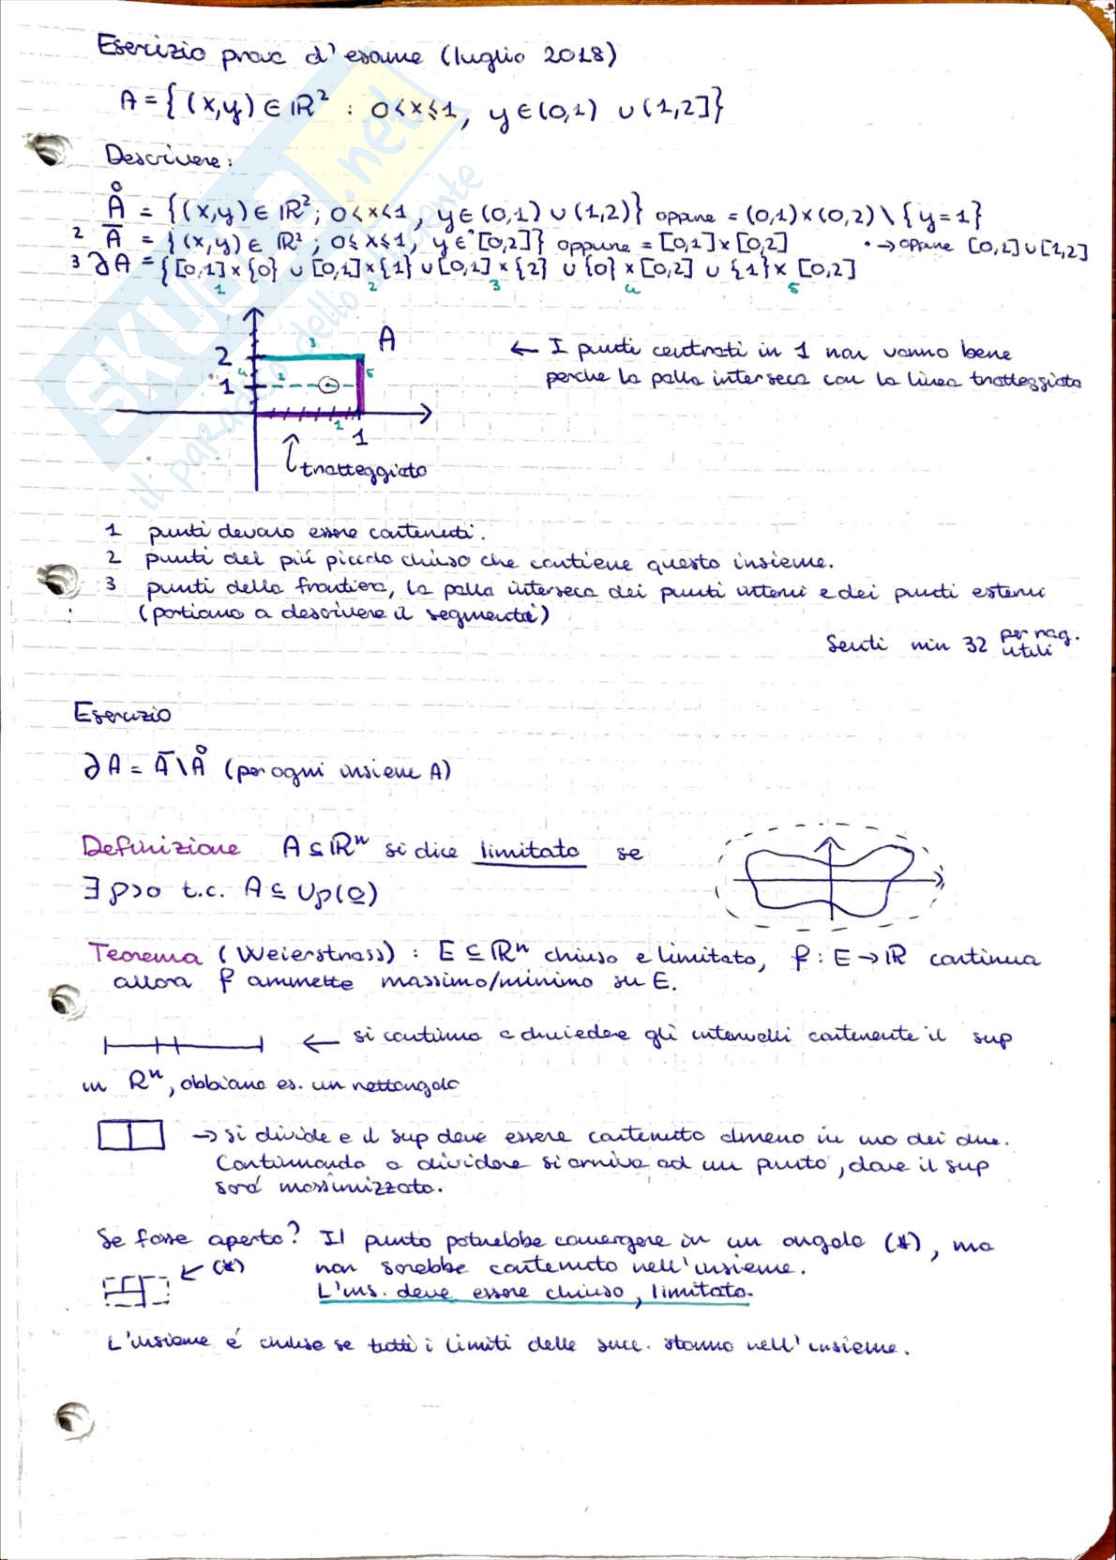 Esercizio prova d'esame (luglio 2018)
A = {(x,y) ∈ ℝ² : 0<x≤1, y∈(0,1) ∪ (1,2]}
Descrivere:
Å = {(x,y) ∈ ℝ²; 0<x<1, y∈(0,1) ∪ (1,2)} oppure = (0,1)×(0,2) \ {y=1}
2 Ā = {(x,y) ∈ ℝ²; 0≤x≤1, y∈*[0,2]} oppure = [0,1]×[0,2] * → oppure [0,1]∪[1,2]
3 ∂A = {[0,1]×{0} ∪ [0,1]×{1} ∪ [0,1]×{2} ∪ {0}×[0,2] ∪ {1}×[0,2]
1 2 3 4 5
A
2
1
1
3
4
2
5
1
← I punti centrati in 1 non vanno bene
perche la palla interseca con la linea tratteggiata
tratteggiato
1 punti devono essere contenuti.
2 punti del più piccolo chiuso che contiene questo insieme.
3 punti della frontiera, la palla interseca dei punti interni e dei punti esterni
(portiamo a descrivere il segmento)
Senti min 32 per rag. utili
Esercizio
∂A = Ā \ Å (per ogni insieme A)
Definizione A ⊆ ℝⁿ si dice limitato se
∃ ρ>0 t.c. A ⊆ Uρ(0)
Teorema (Weierstrass) : E ⊆ ℝⁿ chiuso e limitato, f : E → ℝ continua
allora f ammette massimo/minimo su E.
← si continua a dividere gli intervalli contenente il sup
in ℝⁿ, abbiamo es. un rettangolo
→ si divide e il sup deve essere contenuto almeno in uno dei due.
Continuando a dividere si arriva ad un punto, dove il sup
sarà massimizzato.
Se fosse aperto? Il punto potrebbe convergere in un angolo (*), ma
non sarebbe contenuto nell'insieme.
← (*)
L'ins. deve essere chiuso, limitato.
L'insieme é chiuso se tutti i limiti delle succ. stanno nell'insieme.
SKUOLA.net
il paradiso dello studente